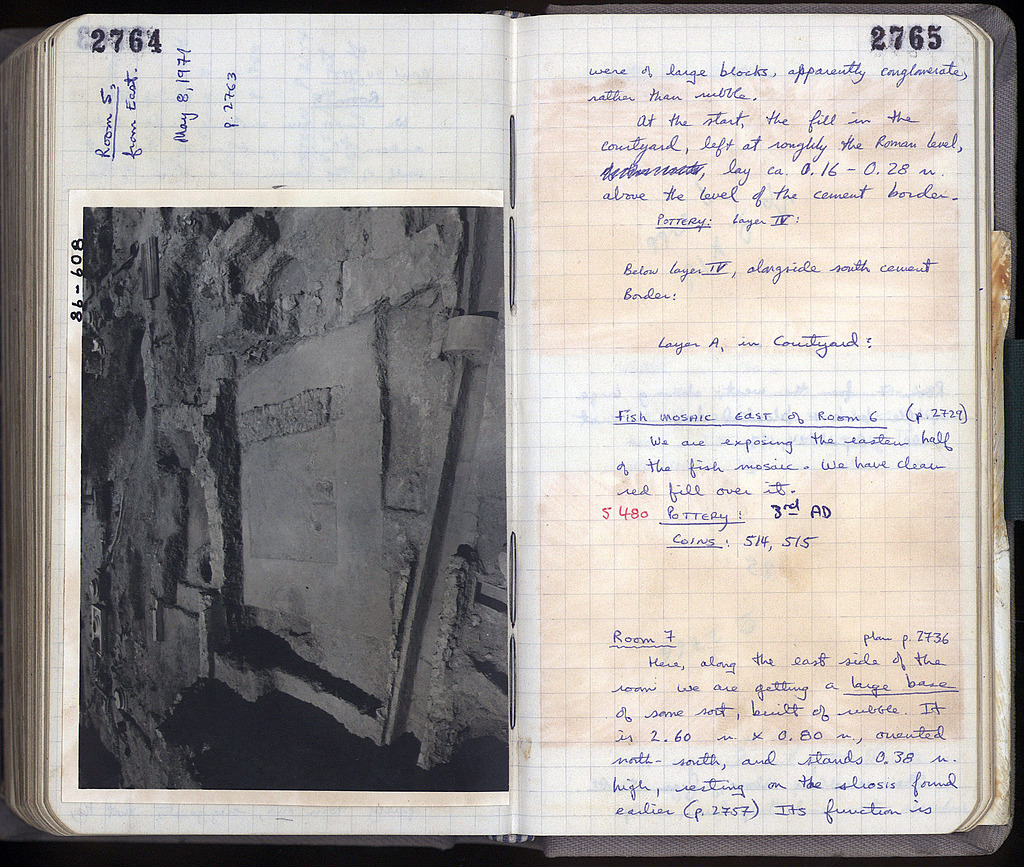 2764
Room 5,
from East.
May 8, 1971
p. 2763
86-608
2765
were of large blocks, apparently conglomerate,
rather than rubble.
At the start, the fill in the
courtyard, left at roughly the Roman level,
lay ca. 0.16 - 0.28 m.
above the level of the cement border.
POTTERY: Layer IV:
Below layer IV, alongside south cement
Border:
Layer A, in Courtyard:
Fish MOSAIC EAST of Room 6 (p. 2729)
We are exposing the eastern half
of the fish mosaic. We have clean
red fill over it.
5 480 POTTERY: 3rd AD
COINS: 514, 515
Room 7 plan p. 2736
Here, along the east side of the
room we are getting a large base
of some sort, built of rubble. It
is 2.60 m. x 0.80 m., oriented
north-south, and stands 0.38 m.
high, resting on the strosis found
earlier (p. 2757) Its function is